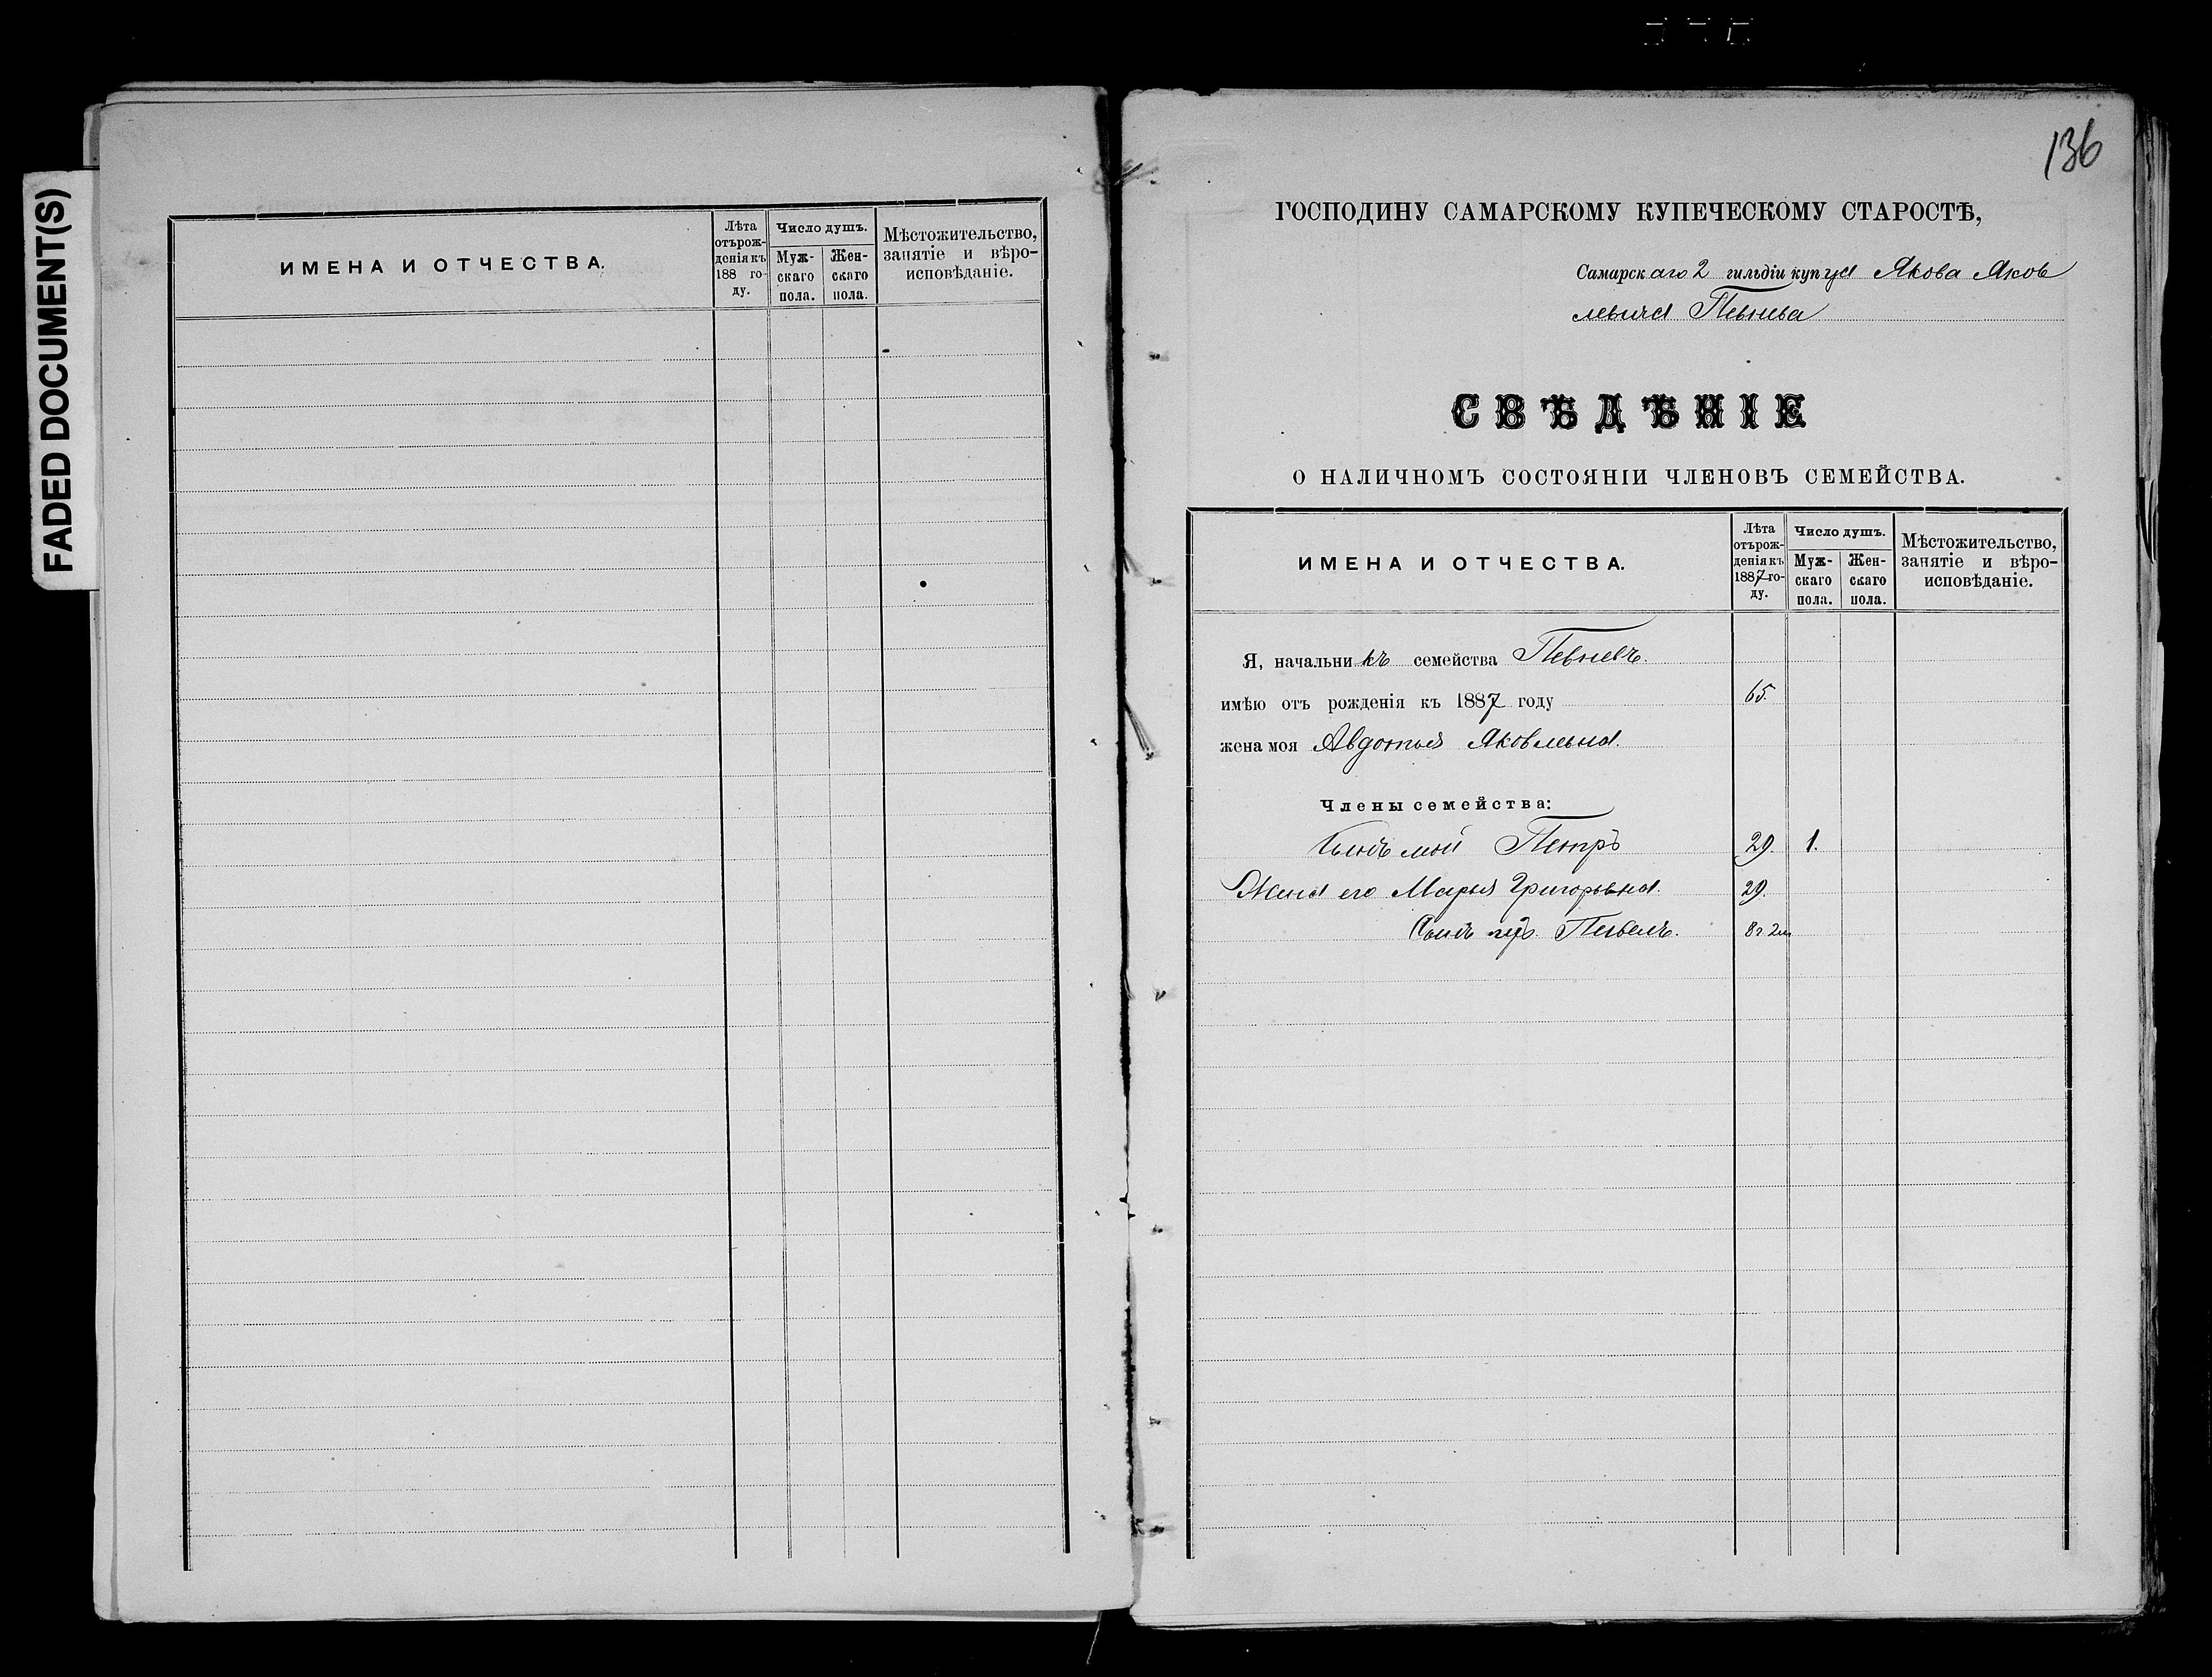 FADED DOCUMENT(S)
ИМЕНА И ОТЧЕСТВА.
Лѣта отърожденія къ 188 году.
Число душъ.
Мужскаго пола.
Женскаго пола.
Мѣстожительство, занятіе и вѣроисповѣданіе.
136
ГОСПОДИНУ САМАРСКОМУ КУПЕЧЕСКОМУ СТАРОСТѢ,
Самарскаго 2 гильдіи купца Якова Яков
левича Певнева
СВѢДѢНІЕ
О НАЛИЧНОМЪ СОСТОЯНІИ ЧЛЕНОВЪ СЕМЕЙСТВА.
ИМЕНА И ОТЧЕСТВА.
Лѣта отърожденія къ 1887 году.
Число душъ.
Мужскаго пола.
Женскаго пола.
Мѣстожительство, занятіе и вѣроисповѣданіе.
Я, начальникъ семейства Певневъ.
имѣю отъ рожденія къ 1887 году 65.
жена моя Авдотья Яковлевна.
Члены семейства:
Сынъ мой Петръ 29. 1.
Жена его Марья Григорьевна. 29.
Сынъ Павелъ. 8 г 2 м